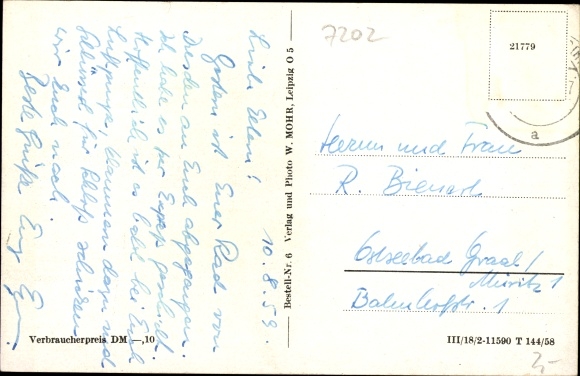 10.8.59.
Liebe Eltern!
Gestern ist Euer Rad von
Dresden an Euch abgegangen.
Ich habe es per Express geschickt.
Hoffentlich ist es bald bei Euch.
Luftpumpe, Klammern dazu und
Schlüssel für Schloß schicken
wir Euch nach.
Beste Grüße Eug
Verbraucherpreis DM —,10
Bestell-Nr. 6 Verlag und Photo W. MOHR, Leipzig O 5
7202
21779
a
Herrn und Frau
R. Bienert
Ostseebad Graal/
Müritz 1
Bahnhofstr. 1
III/18/2-11590 T 144/58
2,-